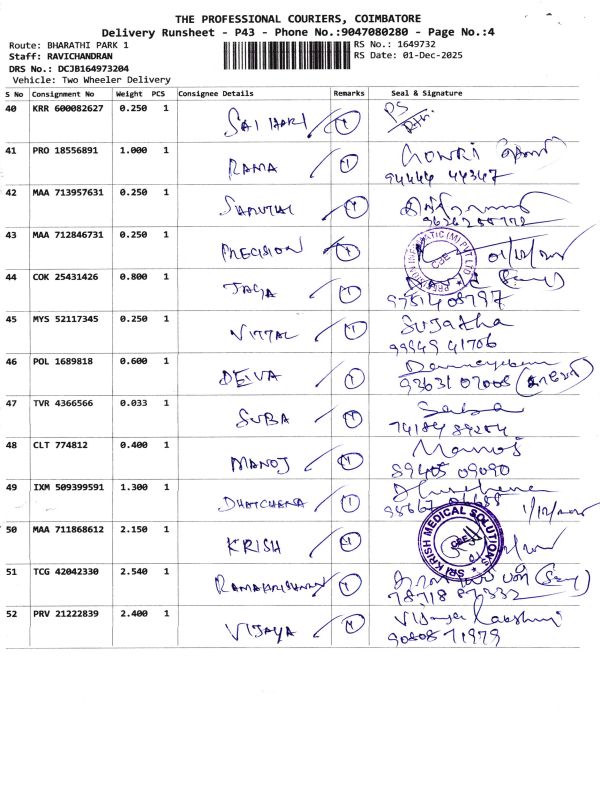 THE PROFESSIONAL COURIERS, COIMBATORE
Delivery Runsheet - P43 - Phone No.:9047080280 - Page No.:4
Route: BHARATHI PARK 1
RS No.: 1649732
Staff: RAVICHANDRAN
RS Date: 01-Dec-2025
DRS No.: DCJB164973204
Vehicle: Two Wheeler Delivery
S No Consignment No Weight PCS Consignee Details Remarks Seal & Signature
40 KRR 600082627 0.250 1 SAI HARI
41 PRO 18556891 1.000 1 RAMA GOWRI
94444 44347
42 MAA 713957631 0.250 1
43 MAA 712846731 0.250 1 PRECISION
44 COK 25431426 0.800 1 JAYA
97514 08797
45 MYS 52117345 0.250 1 VITTAL Sujatha
99949 41706
46 POL 1689818 0.600 1 DEIVA
93631 07008
47 TVR 4366566 0.033 1 SUBA
74184 89284
48 CLT 774812 0.400 1 MANOJ Manoj
89405 09090
49 IXM 509399591 1.300 1 DHATCHENA
50 MAA 711868612 2.150 1 KRISH
SRI KRISH MEDICAL SOLUTIONS
51 TCG 42042330 2.540 1 RAMAKRISHNAN
78718 87332
52 PRV 21222839 2.400 1 VIJAYA Vijaya Lakshmi
90808 71979